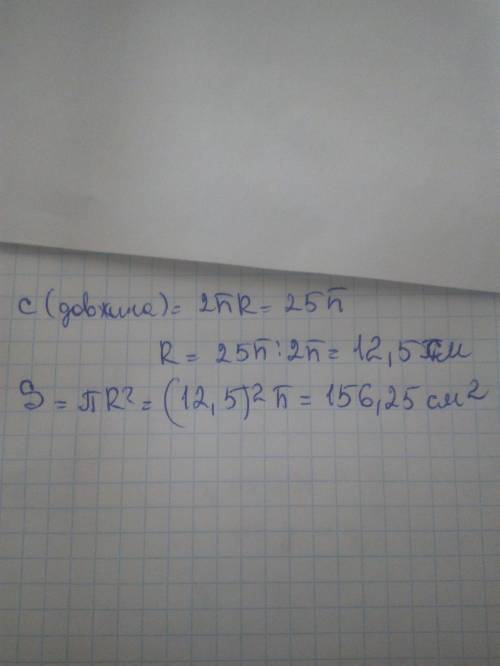 C (довжина) = 2πR = 25π
R = 25π : 2π = 12,5 см
S = πR² = (12,5)² π = 156,25 см²